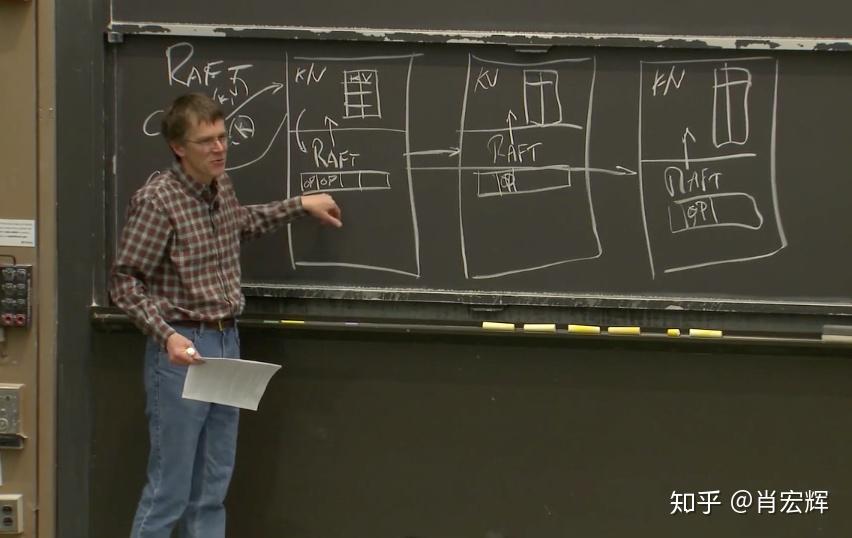 RAFT
K/V
KV
RAFT
OP OP
KV
RAFT
OP
K/V
RAFT
OP
知乎 @肖宏辉